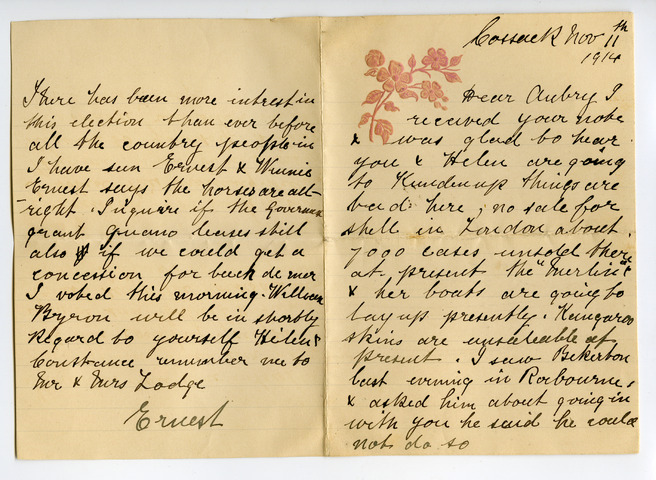 Cossack Nov 11th
1914
Dear Aubry I
received your note
& was glad to hear
you & Helen are going
to Kundenup things are
bad here, no sale for
shell in London about
7000 cases unsold there
at present the "Merlin"
& her boats are going to
lay up presently. Kangaroo
skins are unsaleable at
present. I saw Bickerton
last evning in Roebourne,
& asked him about going in
with you he said he could
not do so
There has been more intrest in
this election than ever before
all the country people in
I have seen Ernest & Winnie
Ernest says the horses are all
right. Inquire if the Government
grant guano leases still
also if we could get a
concession for bech de mer
I voted this morning. William
Byron will be in shortly
Regard to yourself Helen &
Constance remember me to
Mr & Mrs Lodge
Ernest